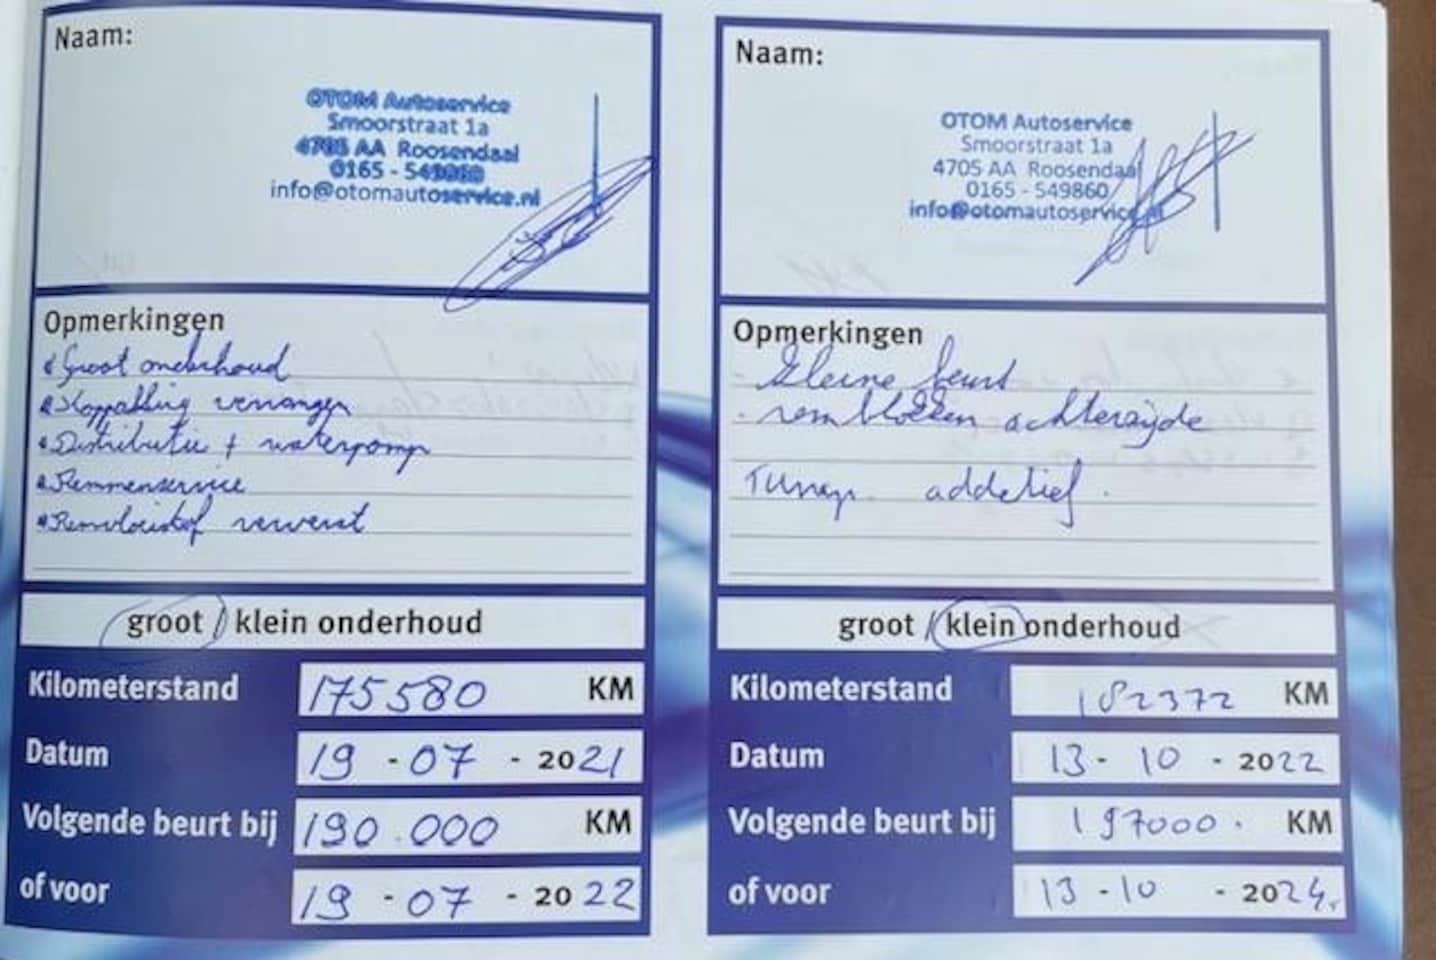 Naam:
OTOM Autoservice
Smoorstraat 1a
4705 AA Roosendaal
0165 - 549860
info@otomautoservice.nl
Opmerkingen
Groot onderhoud
Koppakking vervangen
Distributie + waterpomp
Remmenservice
Remvloeistof ververst
groot / klein onderhoud
Kilometerstand 175580 KM
Datum 19 - 07 - 2021
Volgende beurt bij 190.000 KM
of voor 19 - 07 - 2022
Naam:
OTOM Autoservice
Smoorstraat 1a
4705 AA Roosendaal
0165 - 549860
info@otomautoservice.nl
Opmerkingen
- Kleine beurt
- remblokken achterzijde
addetief.
groot / klein onderhoud
Kilometerstand 182372 KM
Datum 13 - 10 - 2022
Volgende beurt bij 197000. KM
of voor 13 - 10 - 2024.